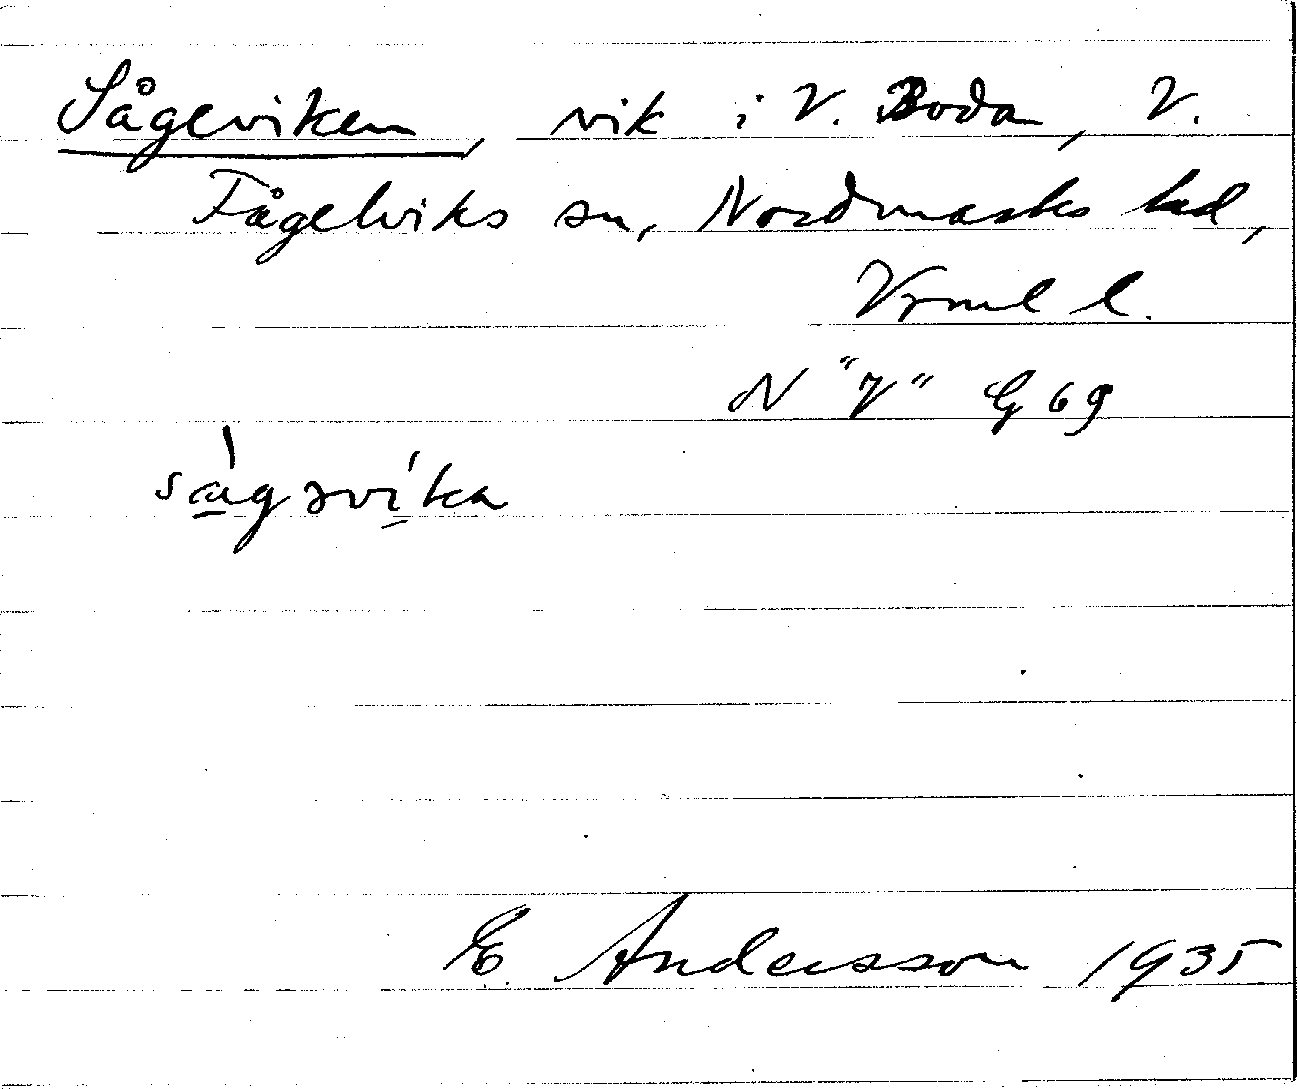 Sågeviken, vik i V. Boda, V.
Fågelviks sn, Nordmarks hd,
Vrml l.
N "V" G 69
sågəvika
E. Andersson 1935